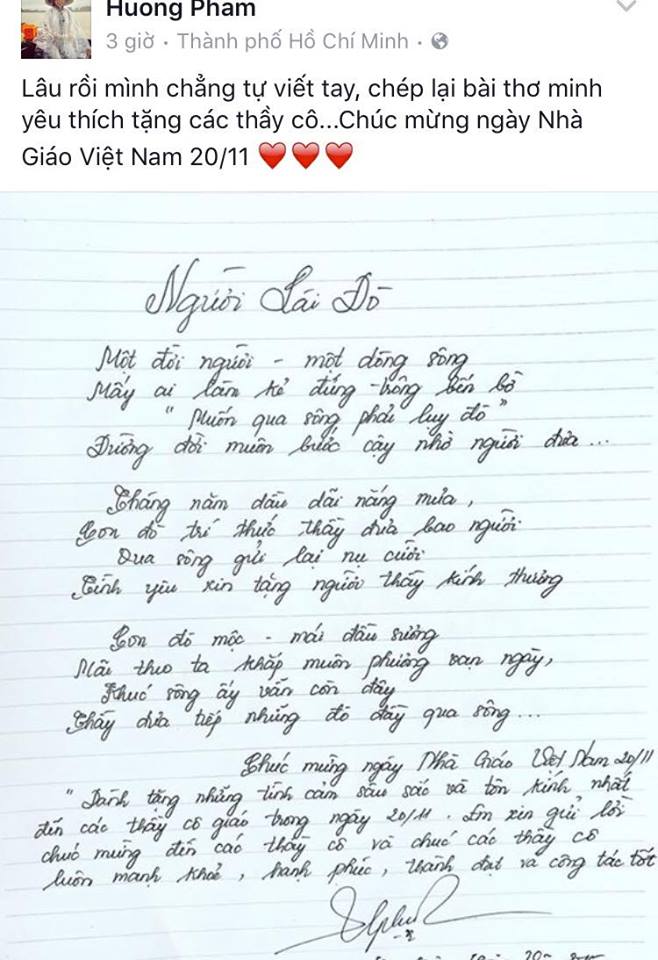 Huong Pham
3 giờ · Thành phố Hồ Chí Minh ·
Lâu rồi mình chẳng tự viết tay, chép lại bài thơ minh
yêu thích tặng các thầy cô...Chúc mừng ngày Nhà
Giáo Việt Nam 20/11 ❤️❤️❤️
Người Lái Đò
Một đời người - một dòng sông
Mấy ai làm kẻ đứng trông bến bờ
" Muốn qua sông phải lụy đò "
Đường đời muôn bước cậy nhờ người đưa ...
Tháng năm dầu dãi nắng mưa,
Con đò trí thức thầy đưa bao người
Qua sông gửi lại nụ cười
Tình yêu xin tặng người thầy kính thương
Con đò mộc - mái đầu sương
Mãi theo ta khắp muôn phương vạn ngày,
Khúc sông ấy vẫn còn đây
Thầy đưa tiếp những đò đầy qua sông ...
Chúc mừng ngày Nhà Giáo Việt Nam 20/11
" Dành tặng những tình cảm sâu sắc và tôn kính nhất
đến các thầy cô giáo trong ngày 20/11. Em xin gửi lời
chúc mừng đến các thầy cô và chúc các thầy cô
luôn mạnh khoẻ, hạnh phúc, thành đạt và công tác tốt